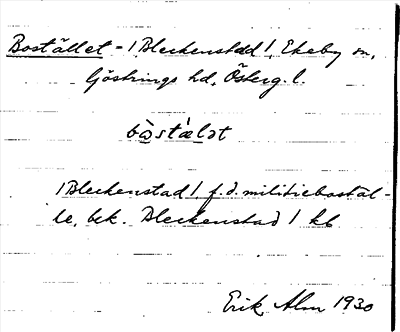 Bostället - /Bleckenstad/, Ekeby sn,
Göstrings hd, Österg. l.
bòstält
/Bleckenstad/ f.d. militiebostäl-
le, bek. Bleckenstad / kb
Erik Alm 1930